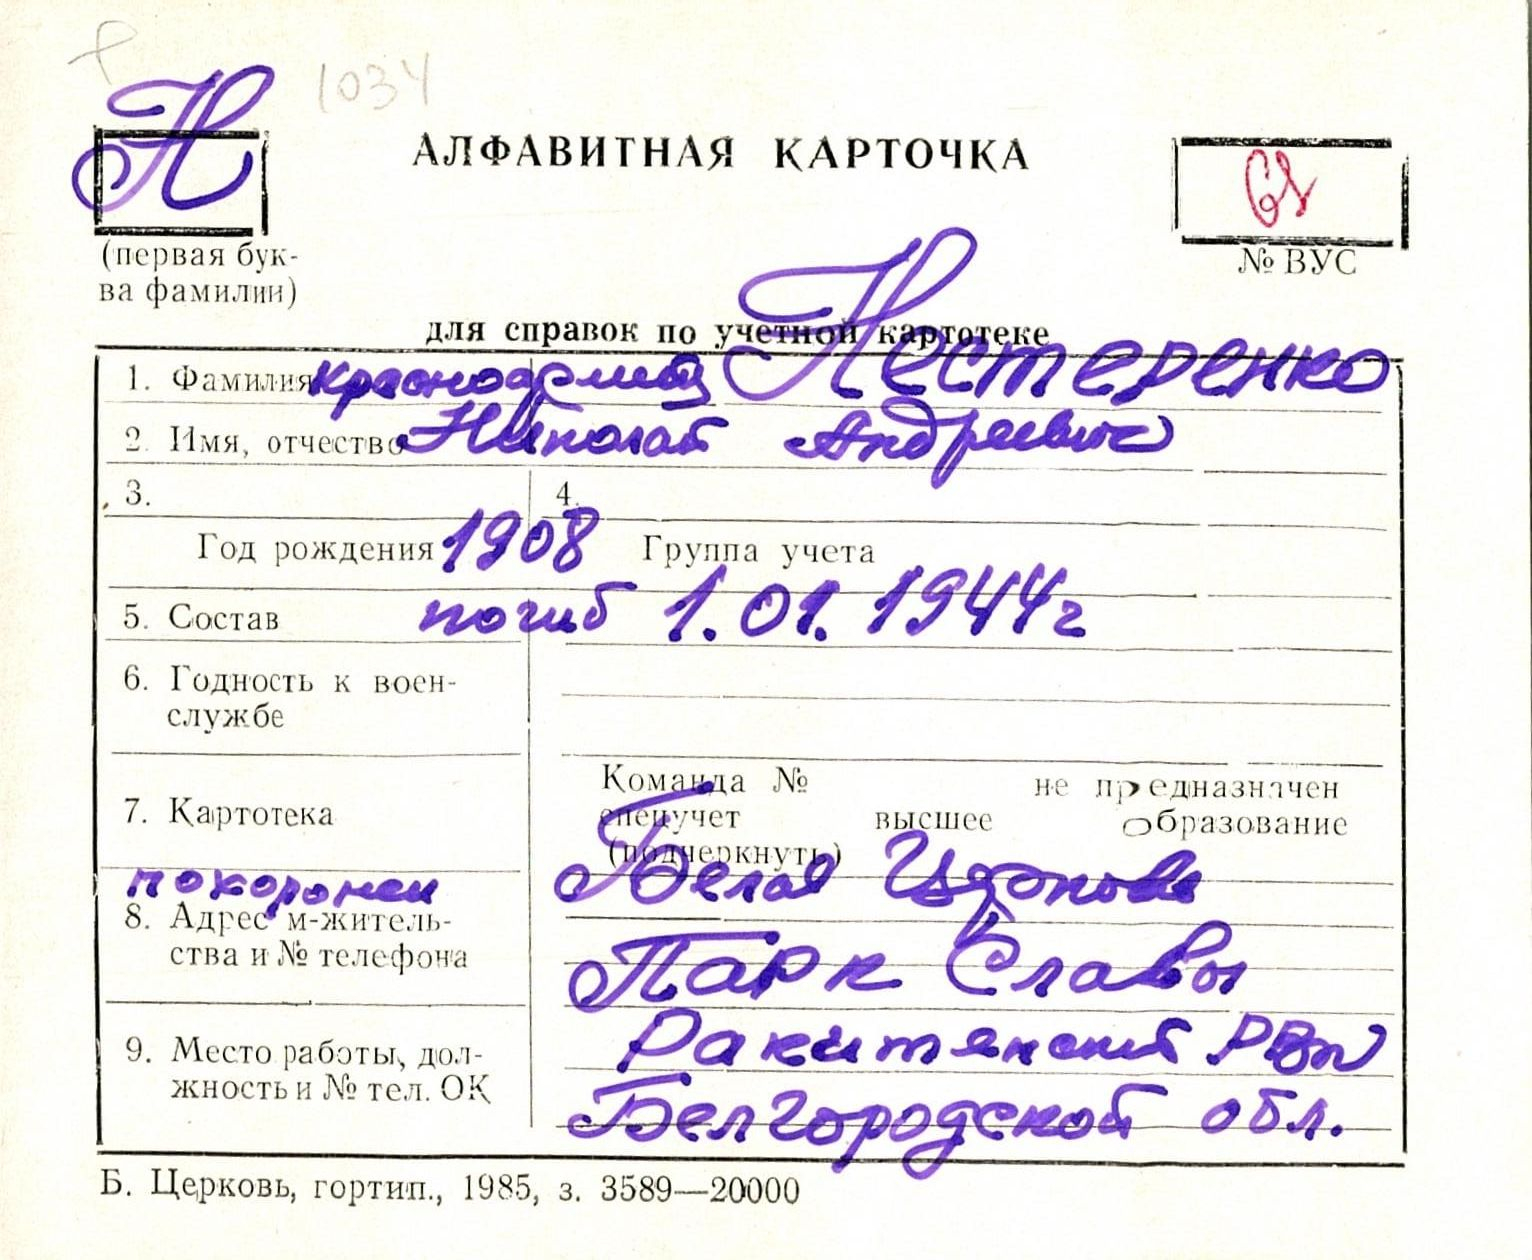 1034
Н
АЛФАВИТНАЯ КАРТОЧКА
(первая бук-
ва фамилии)
№ ВУС
для справок по учетной картотеке
1. Фамилия красноармеец Нестеренко
2. Имя, отчество Николай Андреевич
3. 4.
Год рождения 1908 Группа учета
5. Состав погиб 1.01.1944г
6. Годность к воен-
службе
Команда № не предназначен
7. Картотека спецучет высшее образование
(подчеркнуть)
похоронен Белая Церковь
8. Адрес м-житель-
ства и № телефона Парк Славы
9. Место работы, дол- Ракитянский РВк
жность и № тел. ОК Белгородской обл.
Б. Церковь, гортип., 1985, з. 3589—20000